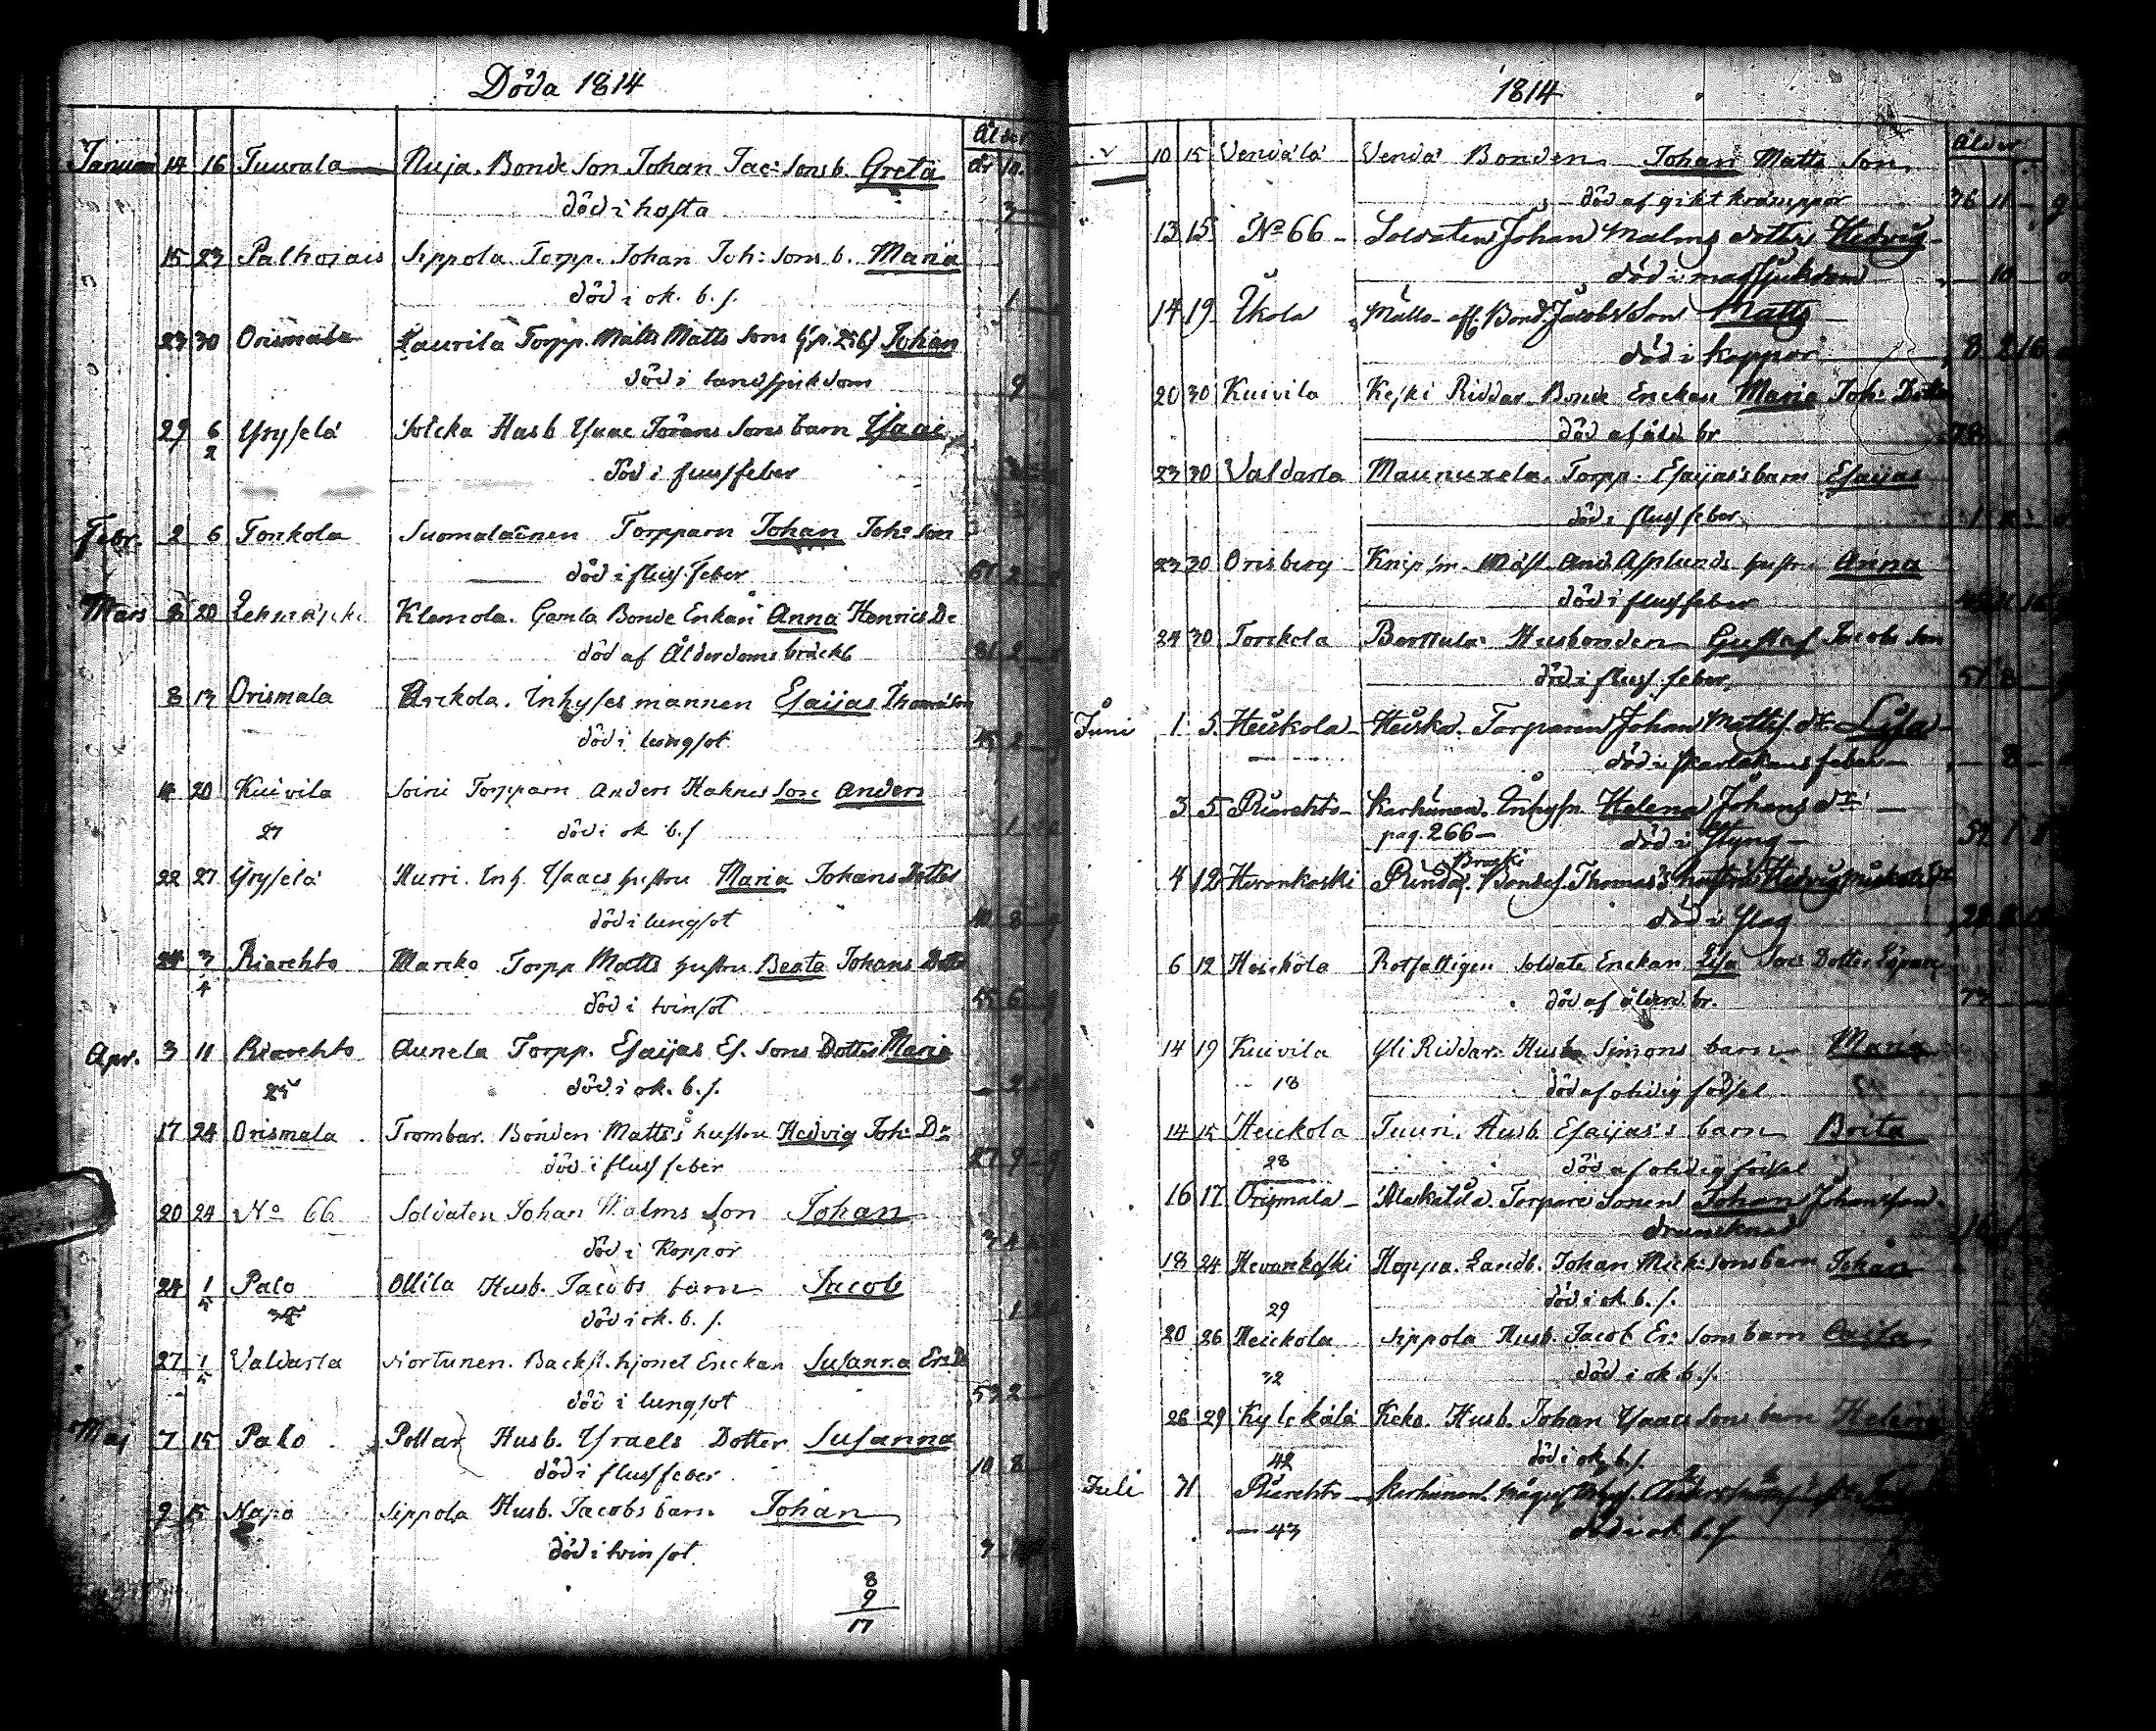 Döda 1814
Ålder
Januari 14 16 Tuurala Ruja. Bonde Son Johan Jac: Sons b. Greta
död i hosta 3
15 23 Palhojais Sippola Torp. Johan Joh: Sons b. Maria
död i ok. b. s. 1
23 30 Orismala Laurila Torpp. Matts Matts Sons (p. 256) Johan
död i tandsjukdom 9
29 6/2 Yrysselä Husb Isaac Görans Sons barn Isaac
död i flussfeber
Febr. 2 6 Tonkola Suomalainen Torpparn Johan Joh: Son
död i fluss feber 61 2
Mars 8 20 Klemola. Gamla Bonde Enkan Anna Henrics Dr
död af Ålderdoms bräckl 81 2
8 13 Orismala Arckola. Inhyses mannen Esaijas Thomæson
död i lungsot
14 20 Kuivila Soini Torpparn Anders Son Anders
27 död i ok b. s 1
22 27 Yrysselä Hurri. Inh. Isaacs hustru Maria Johans Dotter
död i lungsot
24 3/4 Riarehto Marcko Torpp Matts hustru Beata Johans Dotter
död i tvinsot 55 6
Apr. 3 11 Riarehto Aunela Torpp. Esaijas Es. Sons Dotter Maria
25 död i ok. b. s. 2
17 24 Orismala Trombar. Bonden Matts's hustru Hedvig Joh: Dr
död i fluss feber 27 9
20 24 No 66 Soldaten Johan Malms Son Johan
död i Koppor
24 1/5 Palo Ollila Husb. Jacobs barn Jacob
död i ok. b. s. 1
27 1/5 Valdarla Nortunen. Backst. hjonet Enckan Susanna Er: Dr
död i lungsot 53 2
Maj 7 15 Palo Pollar Husb. Israels Dotter Susanna
död i flussfeber 10 8
9 15 Napo Sippola Husb. Jacobs barn Johan
död i tvinsot 3
8
9
17
1814
Ålder
10 15 Vendälä Vendä Bonden Johan Matts Son
död af gikt krämppor 76 11 9
13 15 No 66 Soldaten Johan Malms dotter Hedvig
död i masssjukdom 10
14 19 Ikola Bond Jacobs Son Matts
död i koppor 8 2 16
20 30 Kuivila Keski Riddar Bonde Enckan Maria Joh: Dotter
död af åld br 78
23 30 Valdarla Maunuxela. Torpp. Esaijas's barn Esaijas
död i fluss feber 1
23 30 Orisberg And. Asplunds hustru Anna
död i fluss feber
24 30 Torckola Husbonden Gustaf Jacobs Son
död i fluss. feber 51 8
Juni 1 5 Heickola Heicka. Torparen Johan Mattss. dr. Lisa
död i skarlakans feber 8
3 5 Riarehto Karhunen. Inhyss. Helena Johans dr
pag. 266 död i styng 52 1
4 12 Hevonkoski Bonden Thomas's hustru Hedvig
död i slag
6 12 Heickola Rotfattigen Soldate Enckan Lisa Jac Dotter
död af ålderd. br. 73
14 19 Kuivila Yli Riddar. Husb Simons barn Maria
18 död af otidig födsel
14 15 Heickola Tuuri. Husb Esaijas's barn Brita
28 död af otidig födsel
16 17 Orismala Alaskailа. Torpare Sonen Johan Johansson
drunknad
18 24 Hevonkoski Hoppa. Landb. Johan Mick: Sons barn Johan
29 död i ok. b. s.
20 26 Heickola Sippola Husb. Jacob Er: Sons barn Caisa
32 död i ok b. s.
26 29 Kylckälä Keko. Husb. Johan Isaacs Sons barn Helena
42 död i ok. b. s.
Juli Riarehto Karhunen.
43 död i ok. b. s